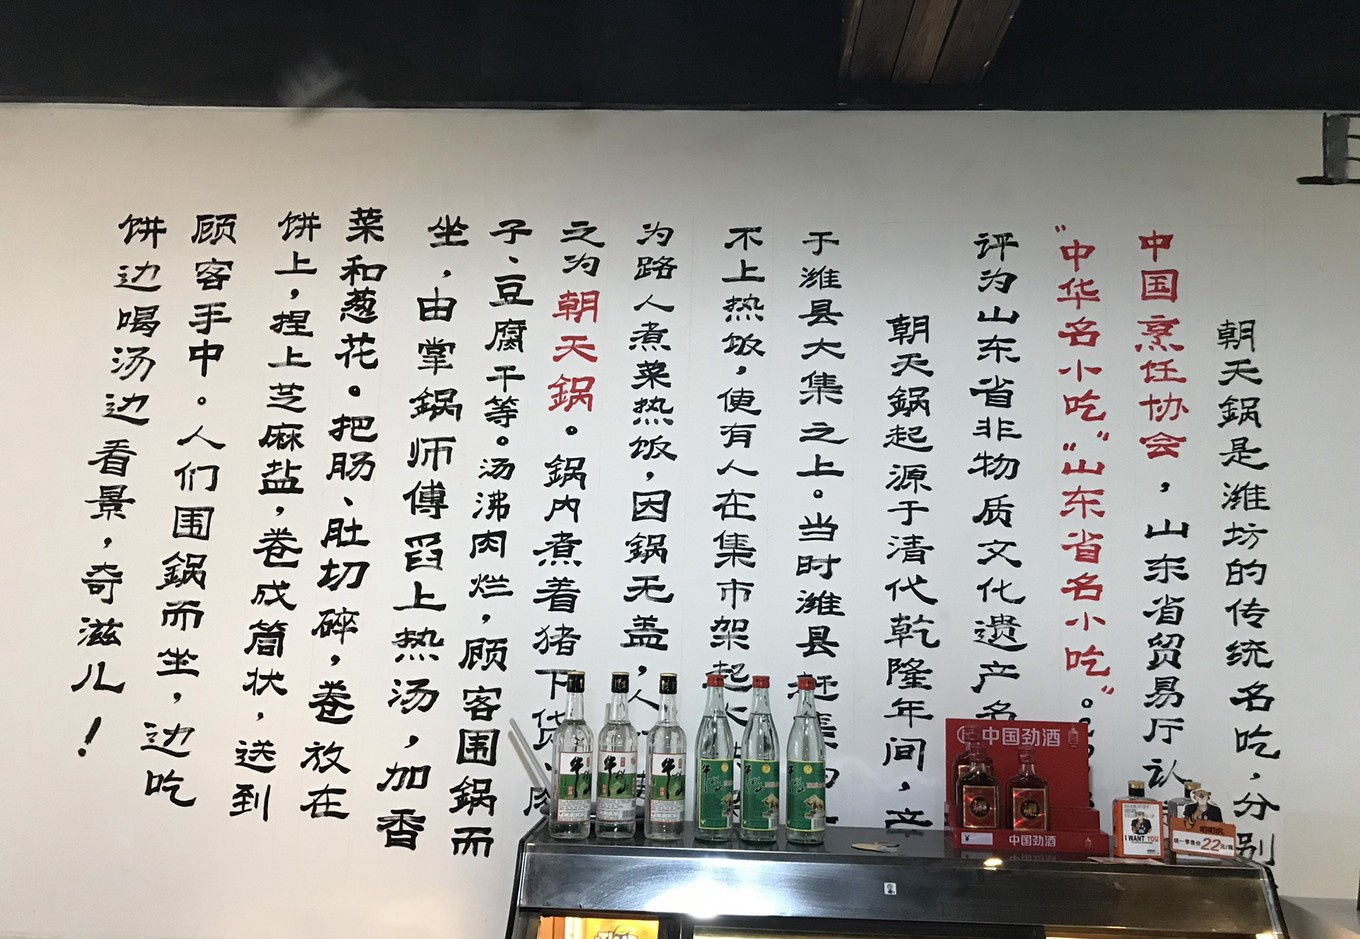 朝天鍋是潍坊的传统名吃,分别
中国烹饪协会,山东省贸易厅认
“中华名小吃”“山东省名小吃”。
评为山东省非物质文化遗产名
朝天鍋起源于清代乾隆年间,产
于潍县大集之上。当时潍县赶集的
不上热饭,使有人在集市架起
为路人煮菜热饭,因鍋无盖,人
之为朝天鍋。鍋内煮着猪下货、肉
子、豆腐干等。汤沸肉烂,顾客围鍋而
坐,由掌鍋师傅舀上热汤,加香
菜和葱花。把肠、肚切碎,卷放在
饼上,捏上芝麻盐,卷成筒状,送到
顾客手中。人们围鍋而坐,边吃
饼边喝汤边看景,奇滋儿!
中国劲酒
中国劲酒
I WANT YOU
统一零售价22元/瓶